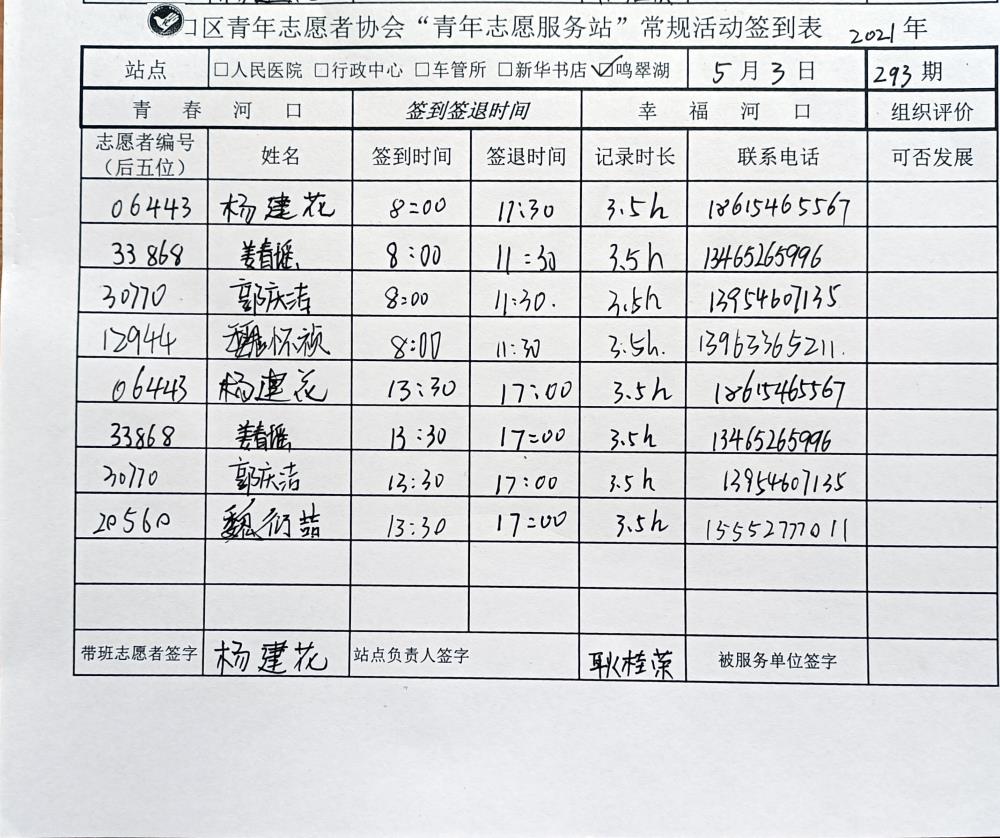 口区青年志愿者协会“青年志愿服务站”常规活动签到表 2021年
站点 □人民医院 □行政中心 □车管所 □新华书店 ☑鸣翠湖 5月3日 293期
青春河口 签到签退时间 幸福河口 组织评价
志愿者编号（后五位） 姓名 签到时间 签退时间 记录时长 联系电话 可否发展
06443 杨建花 8:00 11:30 3.5h 18615465567
33868 姜春瑶 8:00 11:30 3.5h 13465265996
30770 郭庆洁 8:00 11:30. 3.5h 13954607135
12944 怀祯 8:00 11:30 3.5h. 13963365211.
06443 杨建花 13:30 17:00 3.5h 18615465567
33868 姜春瑶 13:30 17:00 3.5h 13465265996
30770 郭庆洁 13:30 17:00 3.5h 13954607135
20560 魏衍喆 13:30 17:00 3.5h 15552777011
带班志愿者签字 杨建花 站点负责人签字 耿桂荣 被服务单位签字